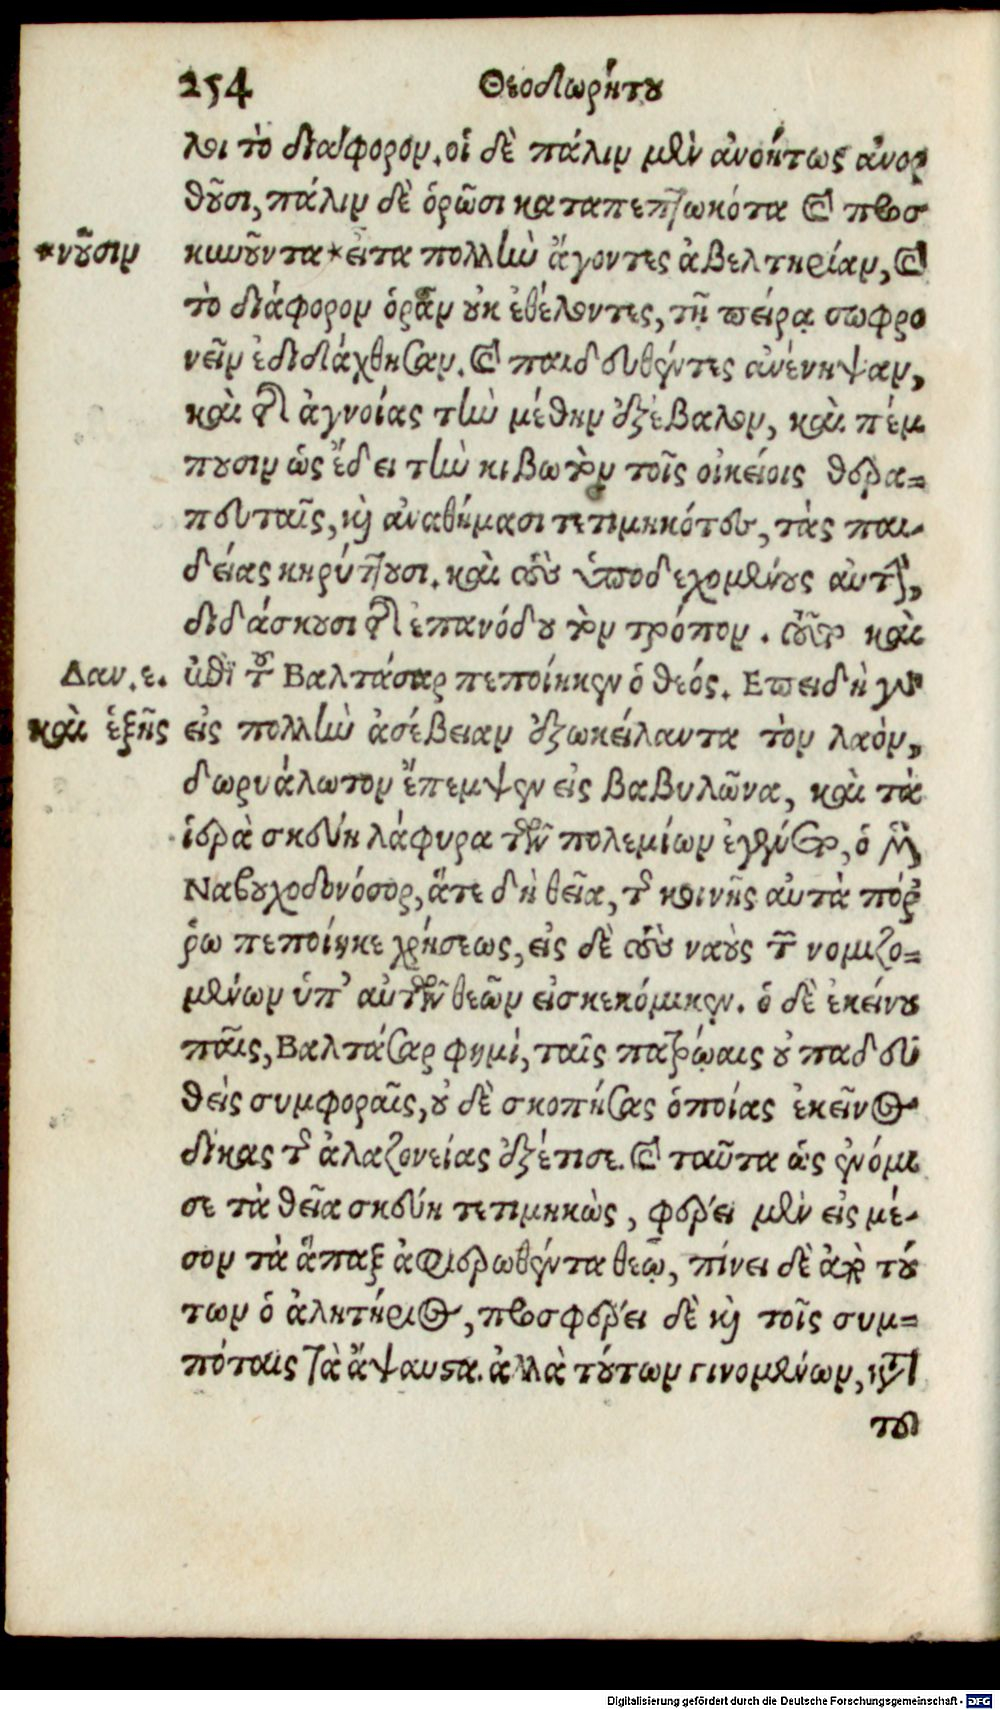 254 Θεοδωρήτου
λοι τὸ διάφορον. οἱ δὲ πάλιν μὲν ἀνοήτως ἀνορ
θοῦσι, πάλιν δὲ ὁρῶσι καταπεπτωκότα καὶ προσ
*νοῦσιν κυνοῦντα* εἶτα πολλὴν ἄγοντες ἀβελτηρίαν, καὶ
τὸ διάφορον ὁρᾶν οὐκ ἐθέλοντες, τῇ πείρᾳ σωφρο
νεῖν ἐδιδάχθησαν. καὶ παιδευθέντες ἀνένηψαν,
καὶ τῆς ἀγνοίας τὴν μέθην ἐξέβαλον, καὶ πέμ
πουσιν ὡς ἔδει τὴν κιβωτὸν τοῖς οἰκείοις θερα=
πευταῖς, καὶ ἀναθήμασι τετιμηκότες, τὰς παι-
δείας κηρύττουσι. καὶ τοὺς ὑποδεχομένους αὐτήν,
διδάσκουσι τῆς ἐπανόδου τὸν τρόπον. τοῦτο καὶ
Δαν. ε. ἐπὶ τοῦ Βαλτάσαρ πεποίηκεν ὁ θεός. Ἐπειδὴ γὰρ
καὶ ἑξῆς εἰς πολλὴν ἀσέβειαν ἐξωκείλαντα τὸν λαὸν,
δωρυάλωτον ἔπεμψεν εἰς Βαβυλῶνα, καὶ τὰ
ἱερὰ σκεύη λάφυρα τῶν πολεμίων ἐγένετο, ὁ μὲν
Ναβουχοδονόσορ, ἅτε δὴ θεῖα, τῆς κοινῆς αὐτὰ πόρ
ῥω πεποίηκε χρήσεως, εἰς δὲ τοὺς ναοὺς τῶν νομιζο=
μένων ὑπ' αὐτῶν θεῶν εἰσκεκόμικεν. ὁ δὲ ἐκείνου
παῖς, Βαλτάσαρ φημὶ, ταῖς πατρῴαις οὐ παιδευ
θεὶς συμφοραῖς, οὐδὲ σκοπήσας ὁποίας ἐκεῖνος
δίκας τῆς ἀλαζονείας ἐξέτισε. καὶ ταῦτα ὡς ἐνόμι
σε τὰ θεῖα σκεύη τετιμηκὼς, φέρει μὲν εἰς μέ-
σον τὰ ἅπαξ ἀφιερωθέντα θεῷ, πίνει δὲ ἀπὸ τού
των ὁ ἀλητήριος, προσφέρει δὲ καὶ τοῖς συμ=
πόταις τὰ ἄψαυστα. ἀλλὰ τούτων γινομένων, κατὰ
Digitalisierung gefördert durch die Deutsche Forschungsgemeinschaft - DFG